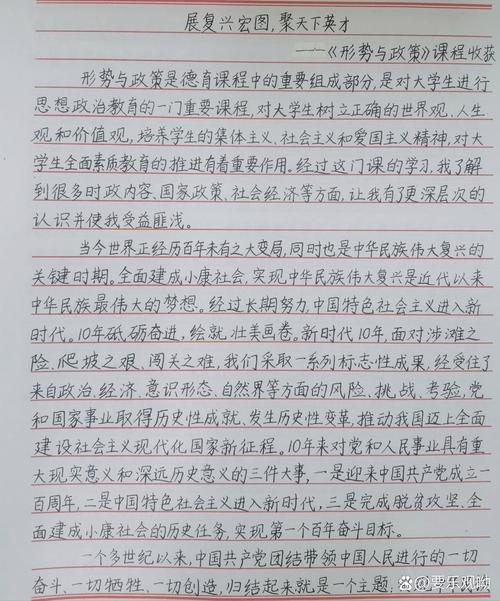 展复兴宏图,聚天下英才
——《形势与政策》课程收获
形势与政策是德育课程中的重要组成部分,是对大学生进行
思想政治教育的一门重要课程,对大学生树立正确的世界观、人生
观和价值观,培养学生的集体主义、社会主义和爱国主义精神,对大
学生全面素质教育的推进有着重要作用。经过这门课的学习,我了解
到很多时政内容、国家政策、社会经济等方面,让我有了更深层次的
认识并使我受益匪浅。
当今世界正经历百年未有之大变局,同时也是中华民族伟大复兴的
关键时期。全面建成小康社会,实现中华民族伟大复兴是近代以来
中华民族最伟大的梦想。经过长期努力,中国特色社会主义进入新
时代。10年砥砺奋进,绘就壮美画卷。新时代10年,面对涉滩之
险、爬坡之艰、闯关之难,我们采取一系列标志性成果,经受住了
来自政治、经济、意识形态、自然界等方面的风险、挑战、考验,党
和国家事业取得历史性成就、发生历史性变革,推动我国迈上全面
建设社会主义现代化国家新征程。10年来对党和人民事业具有重
大现实意义和深远历史意义的三件大事,一是迎来中国共产党成立一
百周年,二是中国特色社会主义进入新时代,三是完成脱贫攻坚、全
面建成小康社会的历史任务,实现第一个百年奋斗目标。
一个多世纪以来,中国共产党团结带领中国人民进行的一切
奋斗、一切牺牲、一切创造,归结起来就是一个主题:
@要乐观呦